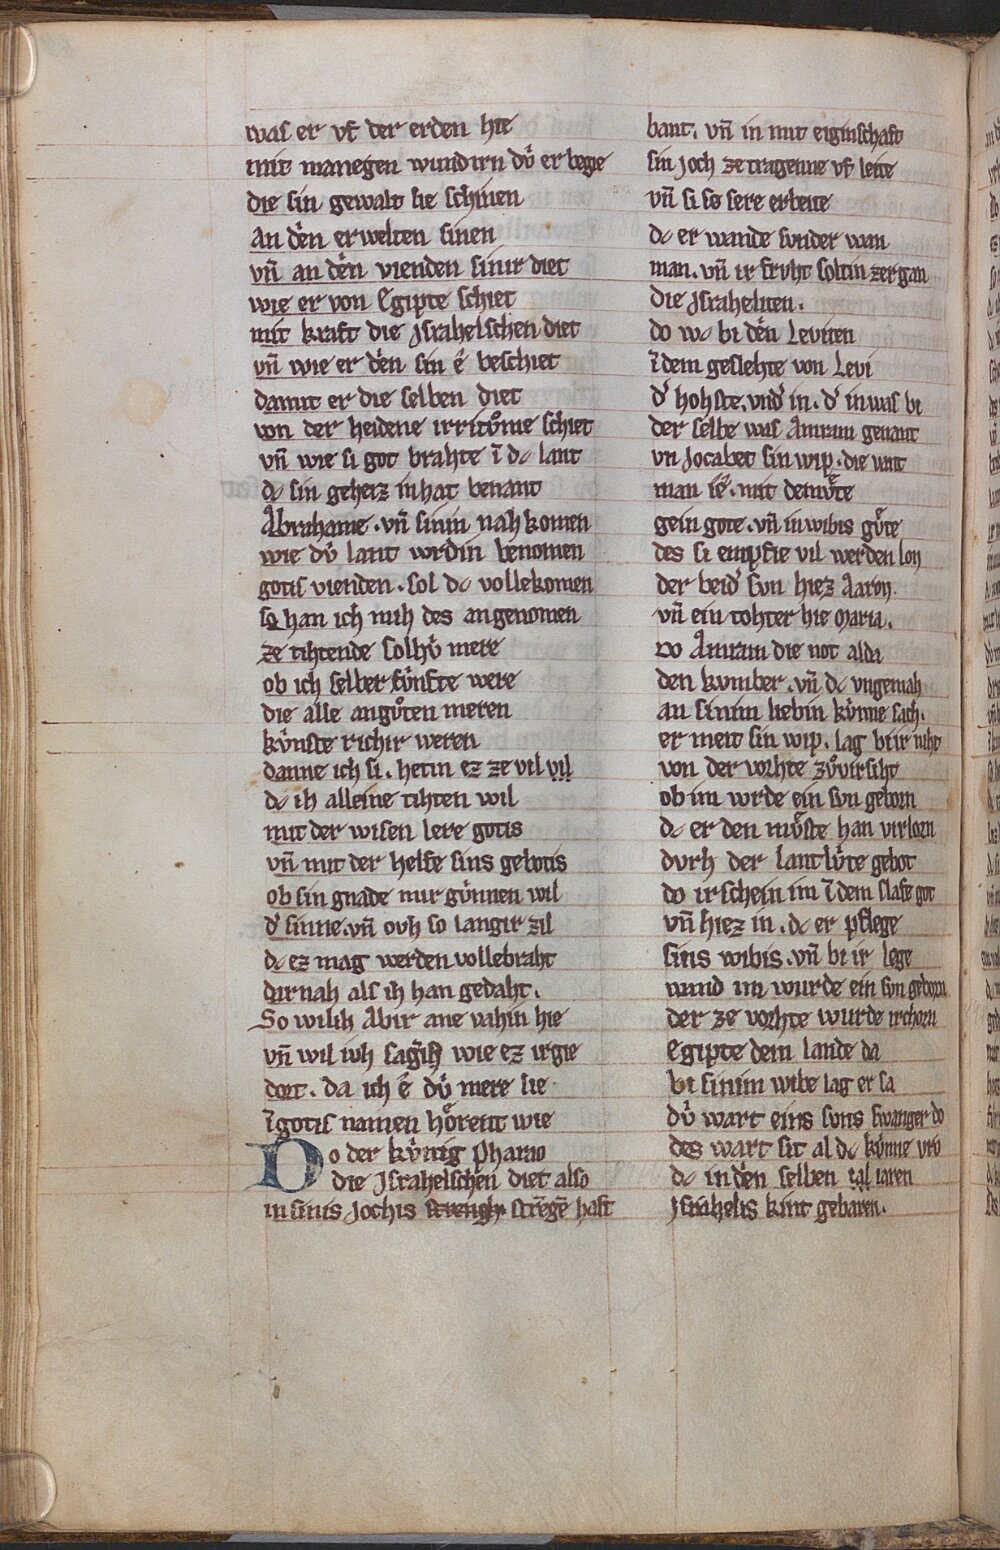 waſ er vf der erden hie
mit manegen wundirn dv̊ er begie
die ſin gewalt lie ſchinen
An dēn erwelten ſinen
vn̄ an dēn vienden ſinir diet
wie er von Egipte ſchiet
mit kraft die Jſrahelſchen diet
vn̄ wie er dēn ſin ê beſchiet
damit er die ſelben diet
von der heidene irritůme ſchiet
vn̄ wie ſi got brahte ī dc lant
dc ſin geheiz in hat benant
Abrahame . vn̄ ſinin nahkomen
wie dv̊ lant wrdin benomen
gotiſ vienden . ſol dc vollekomen
ſo han ich mih des angenomen
ze tihtende ſolhv̊ mere
ob ich ſelber kv̊nſte were
die alle angůten meren
kv̊nſte richir weren
danne ich ſi . hetin ez ze vil vil
dc ih alleine tihten wil
mit der wiſen lere gotis
vn̄ mit der helfe ſins gebotis
ob ſin gnade mir gv̊nnen wil
d' ſinne . vn̄ ovh ſo langir zil
dc ez mag werden vollebraht
darnah alſ ih han gedaht .
So wilih Abir ane vahin hie
vn̄ wil ivh ſagin wie ez irgie
dort . da ich ê dv̊ mere lie
ī gotiſ namen hőrent wie
Do der kv̊nig Pharao
die Jſrahelſchen diet alſo
in ſinis Jochis ſtrengh ſtrēgē haft
bant . vn̄ in mit eiginſchaft
ſin Joch ze tragenne vf leite
vn̄ ſi ſo ſere erbeite
dc er wande ſunder wan
man . vn̄ ir frvht ſoltin zergan
die Jſraheliten .
do wc bi dēn Leviten
ī dem geſlehte von Levi
d' hohſte , vnd' in . d' in was bi
der ſelbe was Amram genant
vn Jocabet ſin wip . die vant
man ie . mit demv̊te
gein gote . vn̄ in wibis gůte
des ſi empfie vil werden lon
der beid' ſvn hiez Aaron .
vn̄ ein tohter hie Maria .
Do Amram die not alda
den kumber . vn̄ dc vngemah
an ſinim liebin kv̊nne ſach .
er meit ſin wip . lag bi ir niht
von der vorhte zůvirſiht
ob im wrde ein ſvn geborn
dc er den mv̊ſte han virlorn
dvrh der lantlv̊te gebot
do irſchein im ī dem ſlafe got
vn̄ hiez in . dc er pflege
ſins wibis . vn̄ bi ir lege
wand im wurde ein ſvn geborn
der ze vorhte wurde irchorn
Egipte dem lande da
bi ſinim wibe lag er ſa
dv̊ wart eins ſvns ſwanger do
des wart ſit al dc kv̊nne vro
dc in dēn ſelben tal iaren
Jſrahelis kint gebaren .